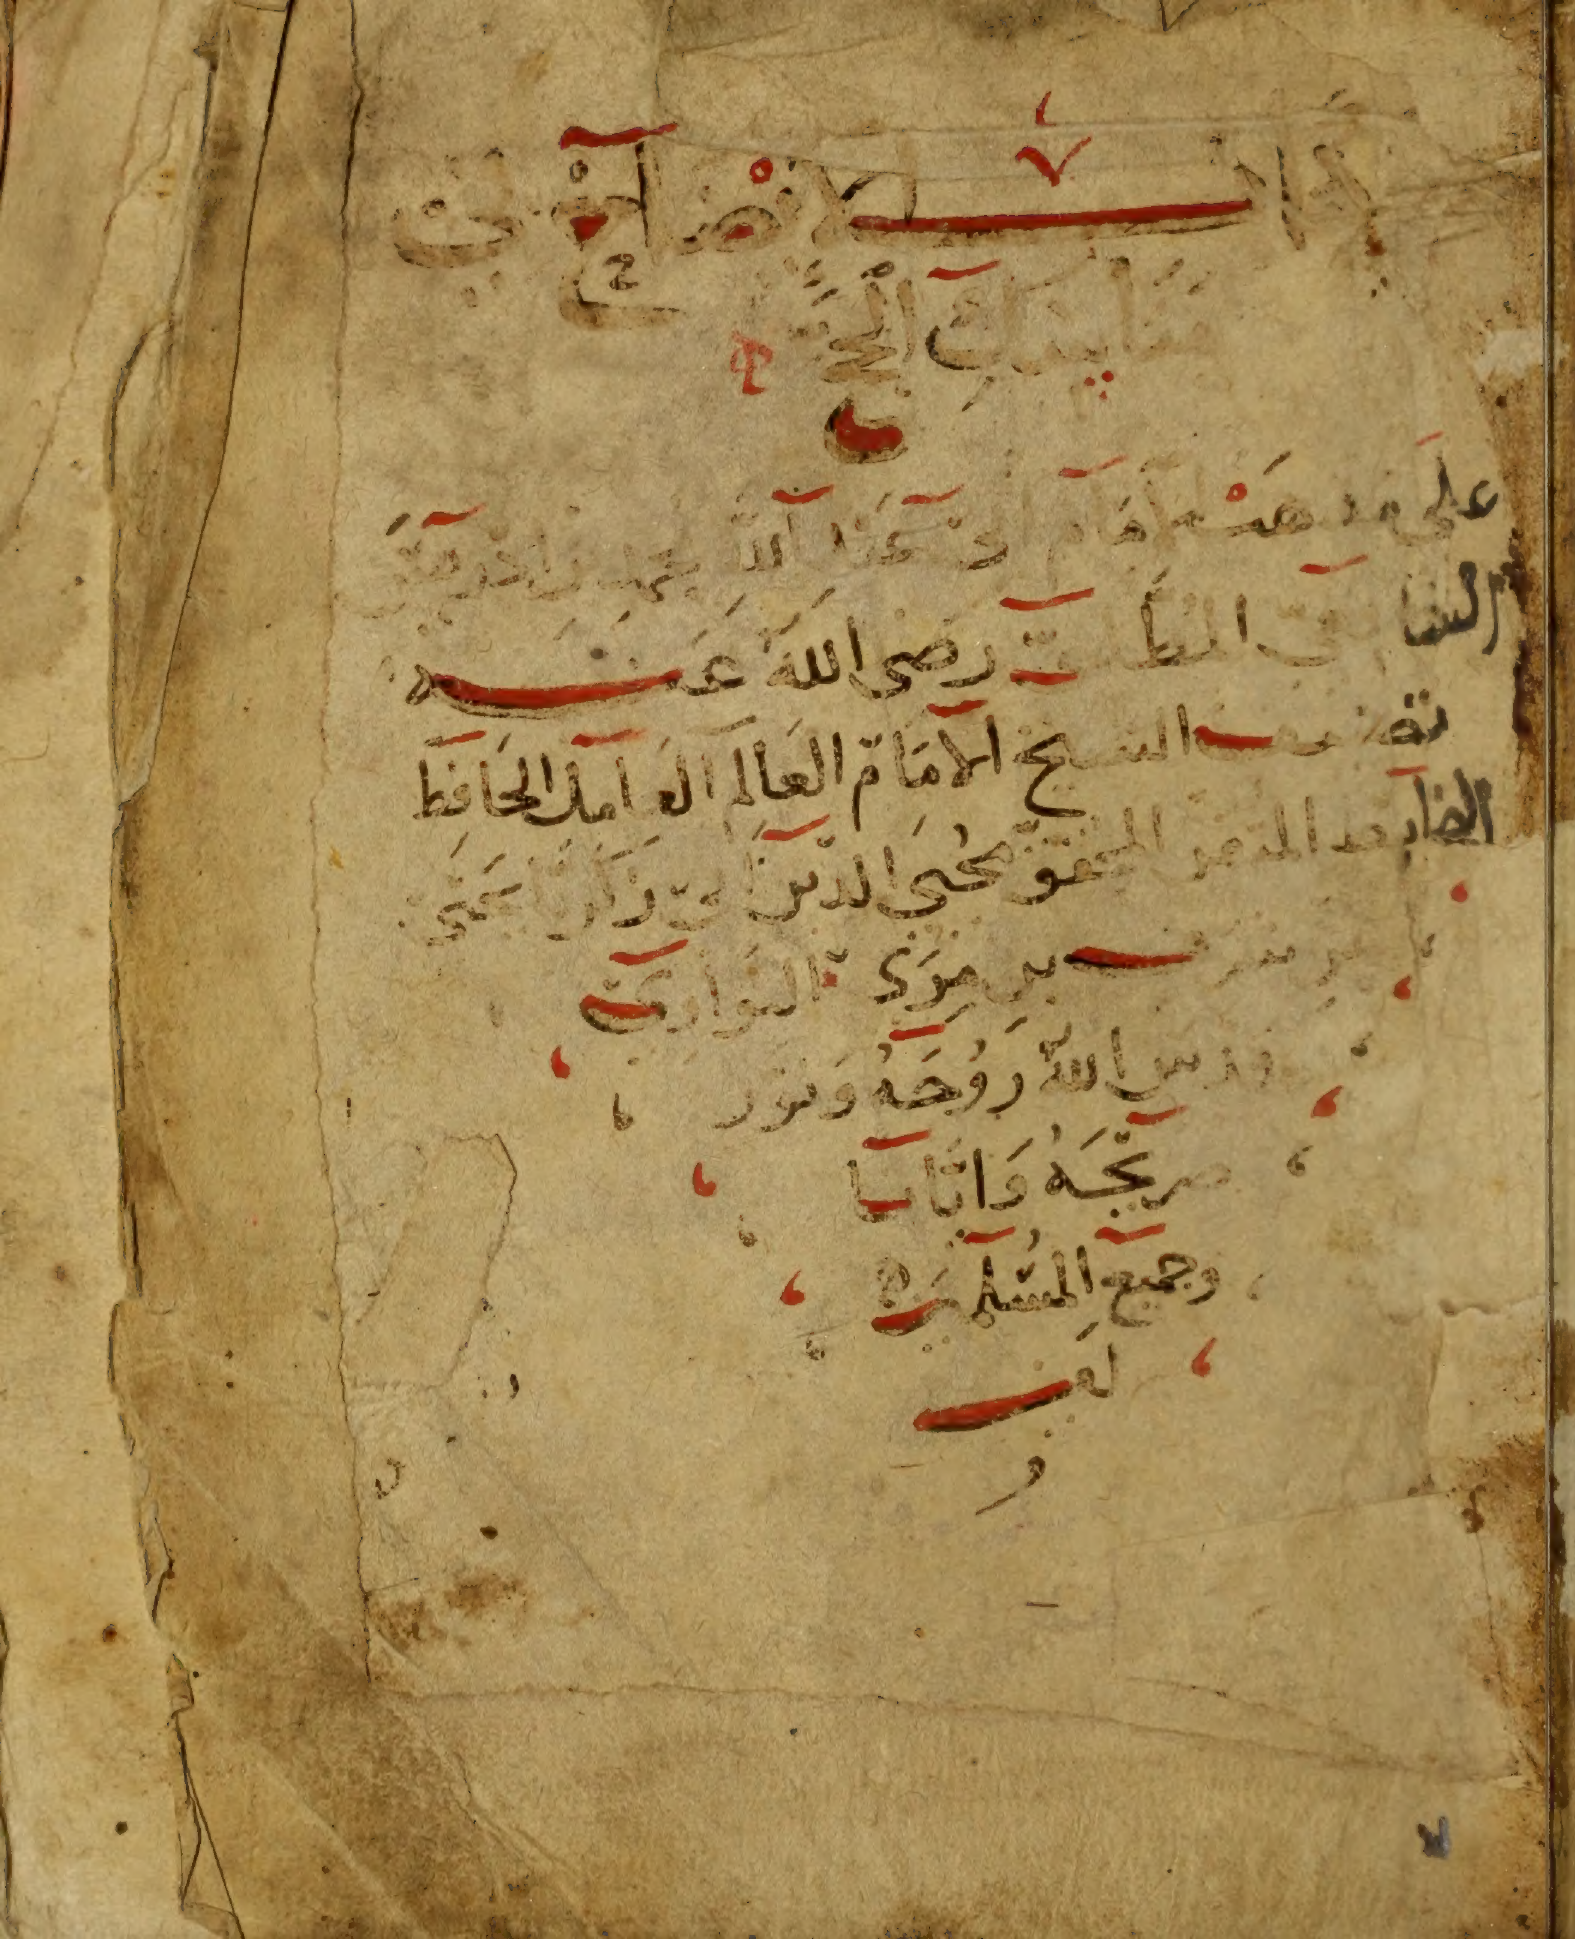 كتاب الايضاح في
مناسك الحج
على مذهب الامام ابي عبد الله محمد بن ادريس
الشافعي المطلبي رضى الله عنه
تصنيف الشيخ الامام العالم العامل الحافظ
المحقق محيى الدين ابى زكريا يحيى
بن شرف بن مرى النواوي
قدس الله روحه ونور
ضريحه واثابنا
وجميع المسلمين